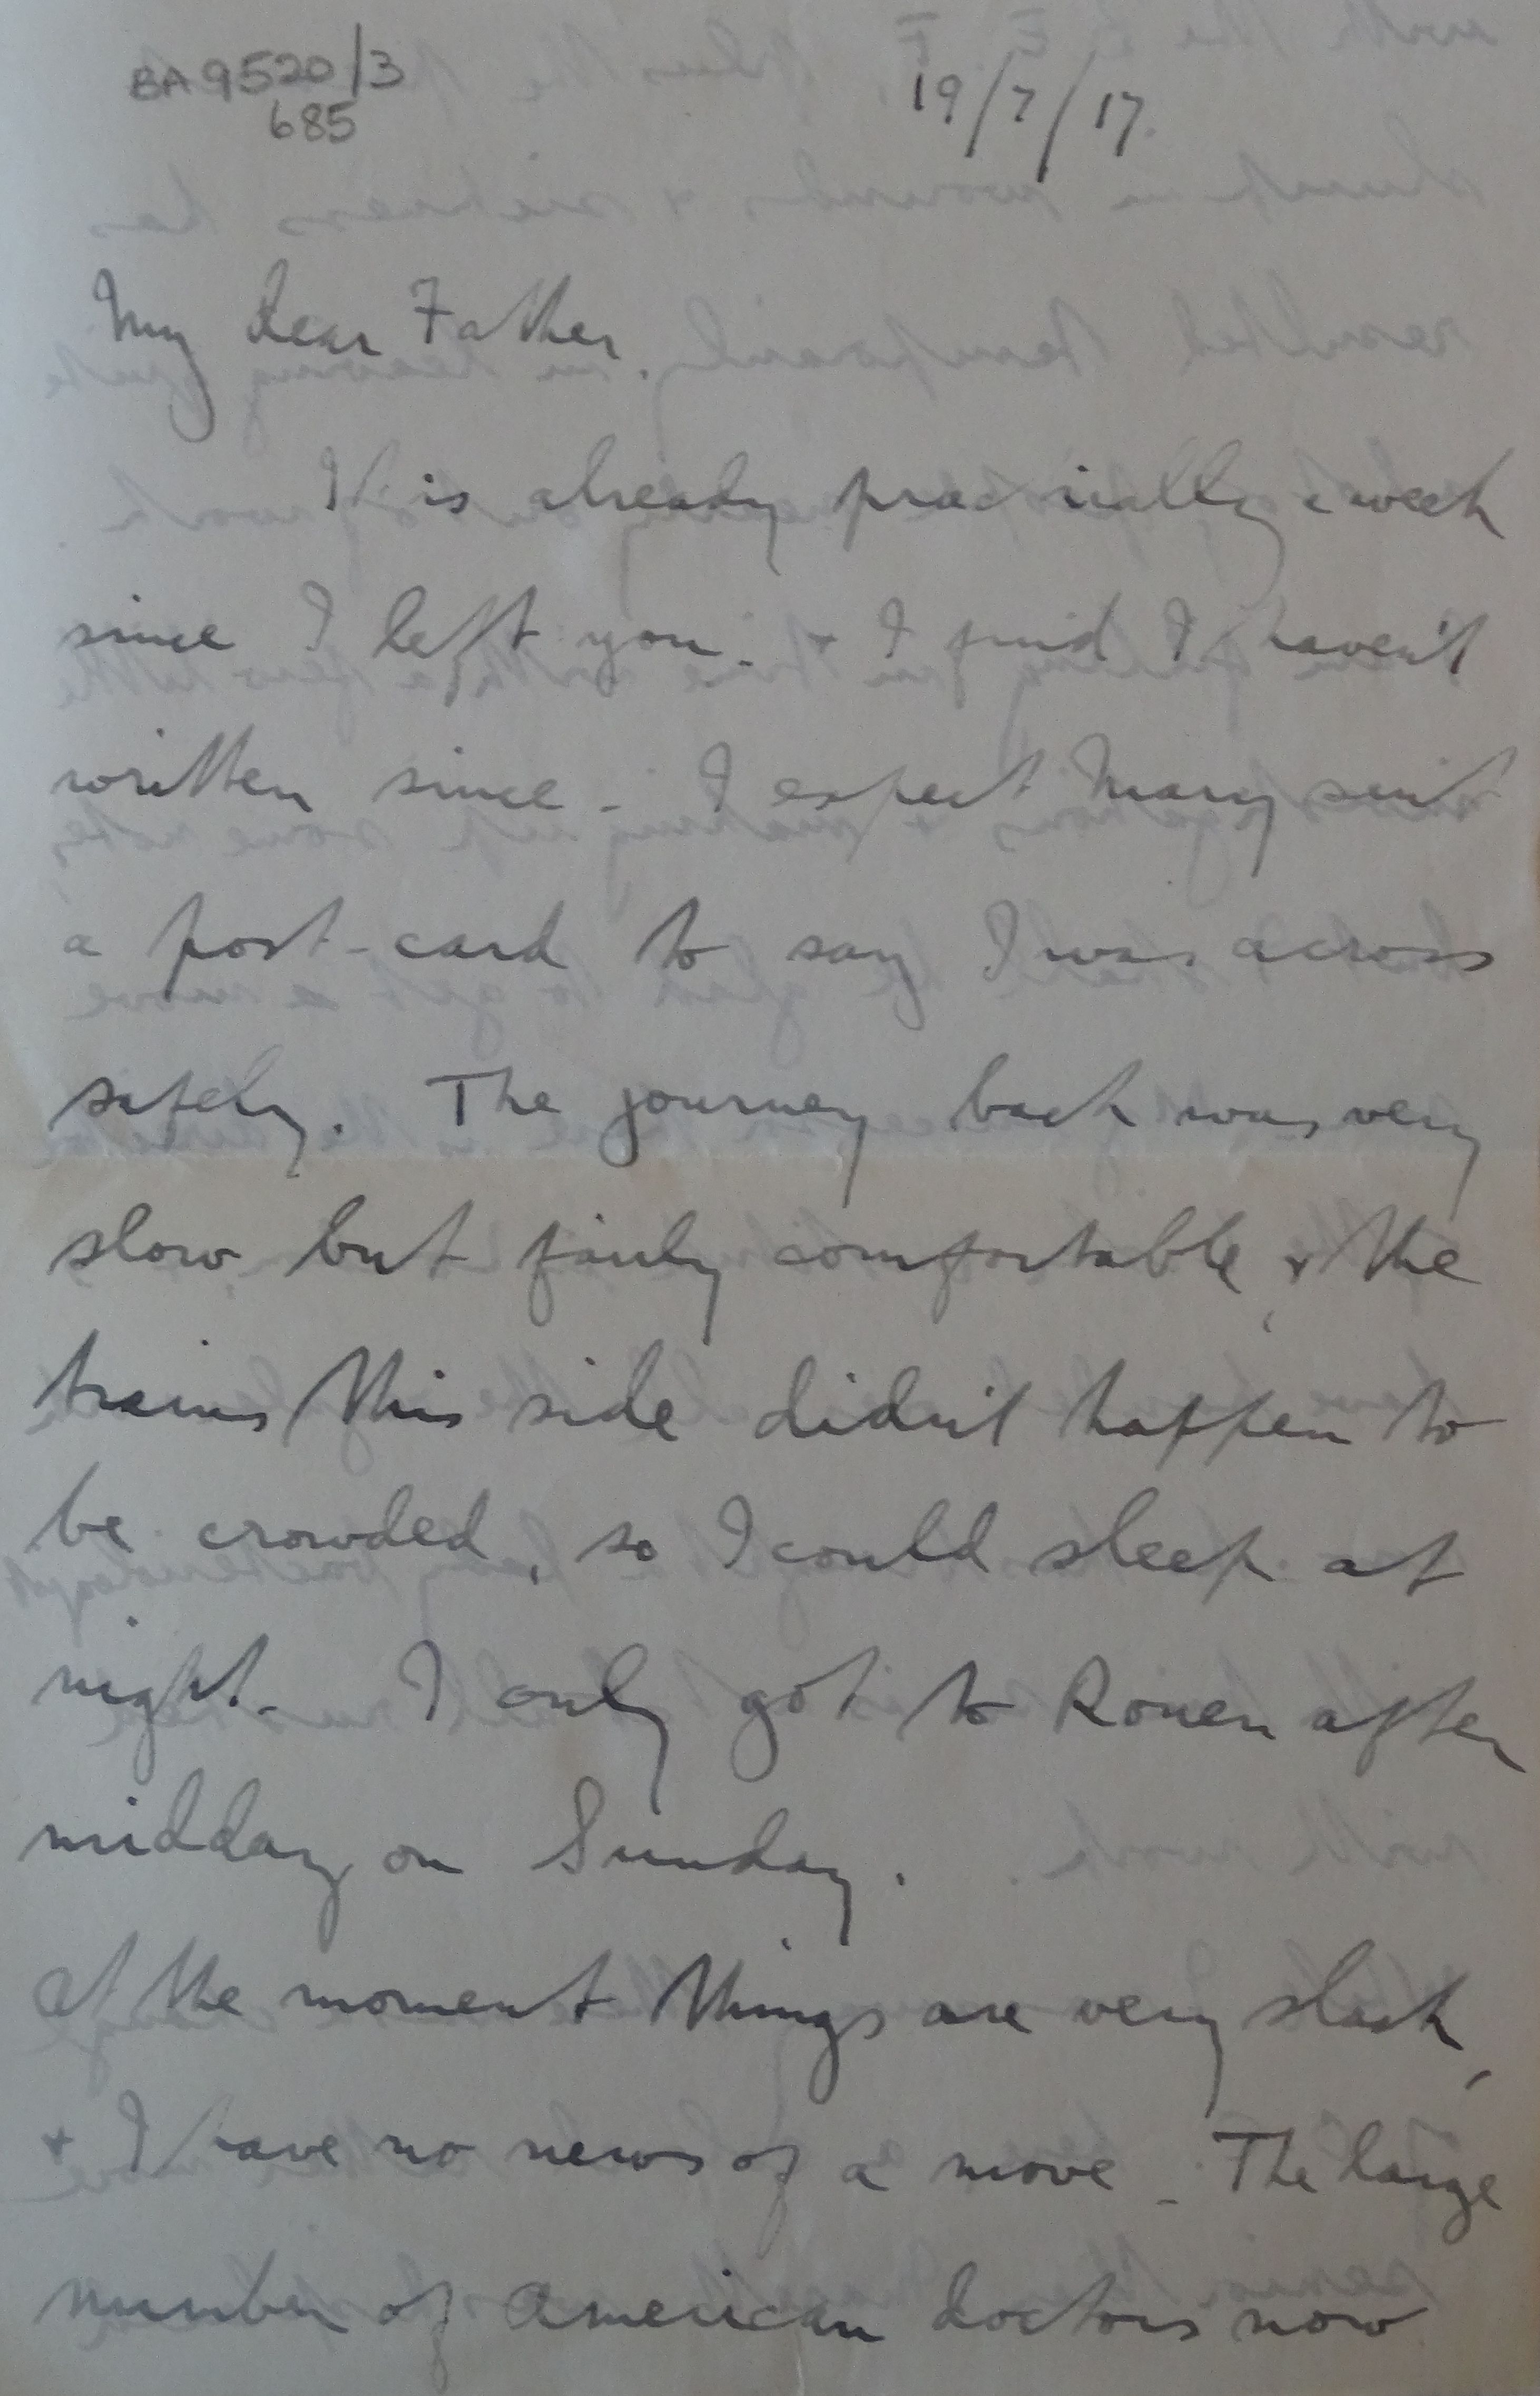 BA9520/3
685
19/7/17.
My dear Father.
It is already practically a week
since I left you. + I find I haven't
written since - I expect Mary sent
a post-card to say I was across
safely. The journey back was very
slow but fairly comfortable, + the
trains this side didn't happen to
be crowded, so I could sleep at
night - I only got to Rouen after
midday on Sunday.
At the moment things are very slack,
+ I have no news of a move - The large
number of American doctors now